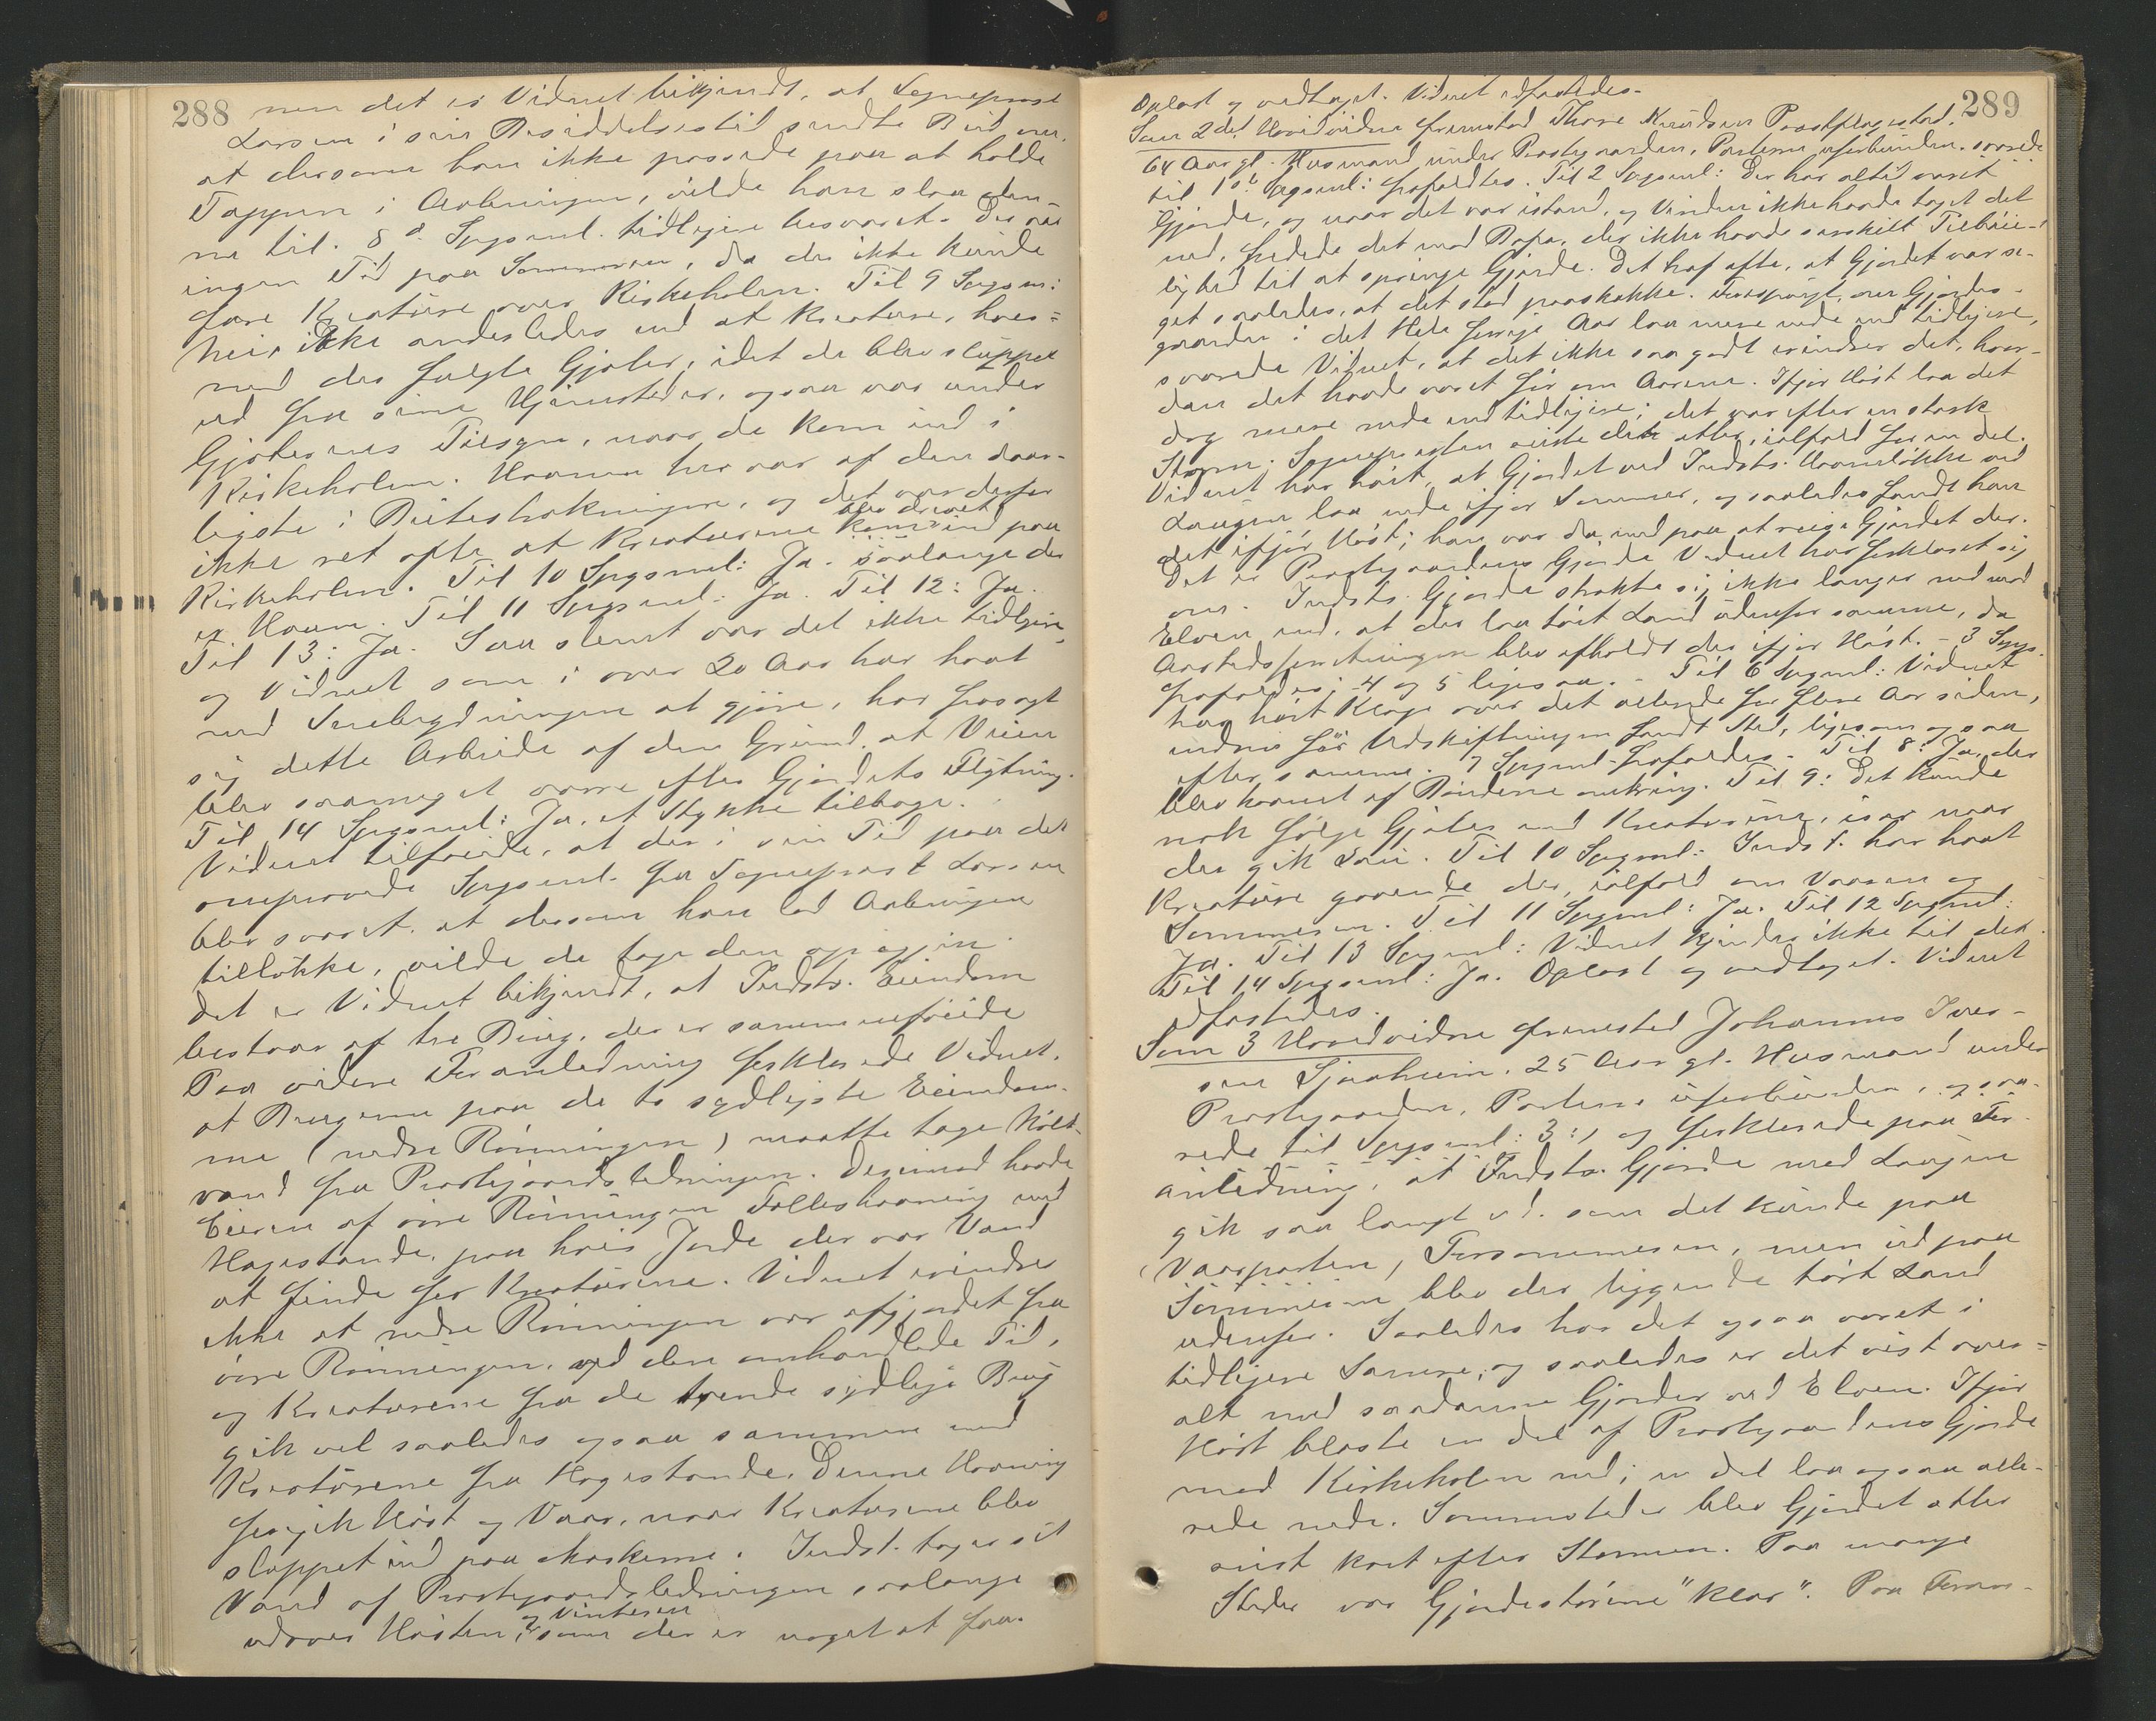 288
men det er Vidnet bekjendt, at Sogneprest
Larsen i sin Besiddelsestid sendte Bud om,
at dersom han ikke passede paa at holde
Tappen i Aabningen, vilde han slaa den-
ne til. 8de Spgsml. tidligere besvaret. Der var
ingen Tid paa Sommeren, da der ikke kunde
fare Kreature over Kirkeholen. Til 9 Spgsm:
nei, ikke anderledes end at Kreature, hvor-
med der fulgte Gjæter, idet de blev sluppet
ud fra sine Hjemsteder, ogsaa var under
Gjæternes Tilsyn, naar de kom ind i
Kirkeholen. Havnen her var af den daar-
ligste i Beitestrækningen, og det var derfor
ikke ret ofte at Kreaturene blev drevet ind paa
Kirkeholen. Til 10 Spgsml: Ja. saalænge der
er Havn. Til 11 Spgsml: Ja. Til 12: Ja.
Til 13: Ja. Saa slemt var det ikke tidligere,
og Vidnet som i over 20 Aar har havt
med Senebygdningen at gjøre, har frasagt
sig dette Arbeide af den Grund, at Veien
blev saameget værre efter Gjærdets Flytning.
Til 14 Spgsml: Ja, et Stykke tilbage.
Vidnet tilføiede, at der i sin Tid paa det
omprovede Spgsml. fra Sogneprest Larsen
blev svaret, at dersom han lod Aabningen
tillukke, vilde de tage den op igjen.
Det er Vidnet bekjendt, at Indst. Eiendom
bestaar af tre Brug, der er sammenføiede
Paa videre Foranledning forklarede Vidnet,
at Brugerne paa de to sydligste Eiendom-
me (nedre Rønningen) maatte tage Kold-
vand fra Prestegaardsledningen. Derimod havde
Eieren af øvre Rønningen Fælleshavning med
Hagestande, paa hvis Jorde der var Vand
at finde for Kreaturene. Vidnet erindrer
ikke at nedre Rønningen var afgjerdet fra
øvre Rønningen, ved den omhandlede Tid,
og Kreaturene fra de tvende sydlige Brug
gik vel saaledes ogsaa sammen med
Kreaturene fra Hagestande. Denne Havning
foregik Høst og Vaar, naar Kreaturene blev
sluppet ind paa Markerne. Indst. tager sit
Vand af Prestegaardsledningen saalænge
udover Høsten og Vinteren, som der er noget at faa.
289
Oplæst og vedtaget. Vidnet edfæstedes.
Som 2det Hovedvidne fremstod Thore Knudsen Præstflagestad,
64 Aar gl. Husmand under Prestegaarden, Parterne uforbunden. svarede
til 1ste Spgsml: frafaldtes. Til 2 Spgsml: Der har altid været
Gjærde, og naar det var istand, og Vinden ikke havde taget det
ned, fredede det mod Bufæ, der ikke havde særskilt Tilbøie-
lighed til at springe Gjærde. Det traf ofte, at Gjærdet var se-
get saaledes, at det stod paaskakke. Forespurgt, om Gjærdes-
gaarden i det Hele forrige Aar laa mere nede end tidligere,
svarede Vidnet, at det ikke saa godt erindrer det, hvor-
dan det havde været før om Aarene. Ifjor Høst laa det
dog mere nede end tidligere; det var efter en stærk
Storm; Sognepresten reiste det atter, ialfald for en del.
Vidnet har hørt, at Gjærdet ved Indsts. Havneløkke ved
Laagen laa nede ifjor Sommer, og saaledes fandt han
det ifjor Høst; han var da med paa at reise Gjærdet der.
Det er Prestegaardens Gjærde Vidnet har forklaret sig
om. Indsts. Gjærde strakte sig ikke længer ned mod
Elven end, at der laa tørt Land udenfor samme, da
Aastedsforretningen blev afholdt der ifjor Høst. - 3 Spgs.
frafaldes; 4 og 5 ligesaa. - Til 6 Spgsml: Vidnet
har hørt Klage over det allerede for flere Aar siden,
endnu før Udskiftningen fandt Sted, ligesom ogsaa
efter samme. 7 Spgsml. frafaldes. - Til 8: Ja, der
blev havnet af Bønderne omkring. Til 9: Det kunde
nok følge Gjæter med Kreaturene, især naar
der gik Sau. Til 10 Spgsml: Indst. har havt
Kreature gaaende der, ialfald om Vaaren og
Sommeren. Til 11 Spgsml: Ja. Til 12 Spgsml:
Ja. Til 13 Spgsml: Vidnet kjender ikke til det.
Til 14 Spgsml: Ja. Oplæst og vedtaget. Vidnet
edfæstedes.
Som 3 Hovedvidne fremsted Johannes Iver-
sen Sjaaheim, 25 Aar gl. Husmand under
Prestegaarden, Parterne uforbunden, og sva-
rede til Spgsml: 3:, og forklarede paa For-
anledning, at Indsts. Gjærde mod Laagen
gik saa langt ud, som det kunde paa
Vaarparten, Forsommeren, men ud paa
Sommeren blev der liggende tørt Land
udenfor. Saaledes har det ogsaa været i
tidligere Somre; og saaledes er det vist over-
alt med saadanne Gjærder ved Elven. Ifjor
Høst blæste en del af Prestegaardens Gjærde
mod Kirkeholen ned; en del laa ogsaa alle-
rede nede. Sommesteder blev Gjærdet atter
reist kort efter Stormen. Paa mange
Steder var Gjærdestørene "klar". Paa Foran-